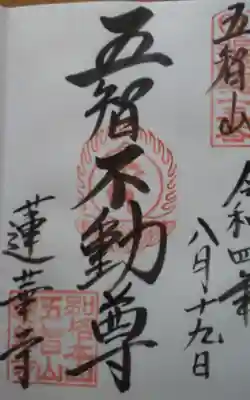 五智山
令和四年
八月十九日
五智不動尊
蓮華寺